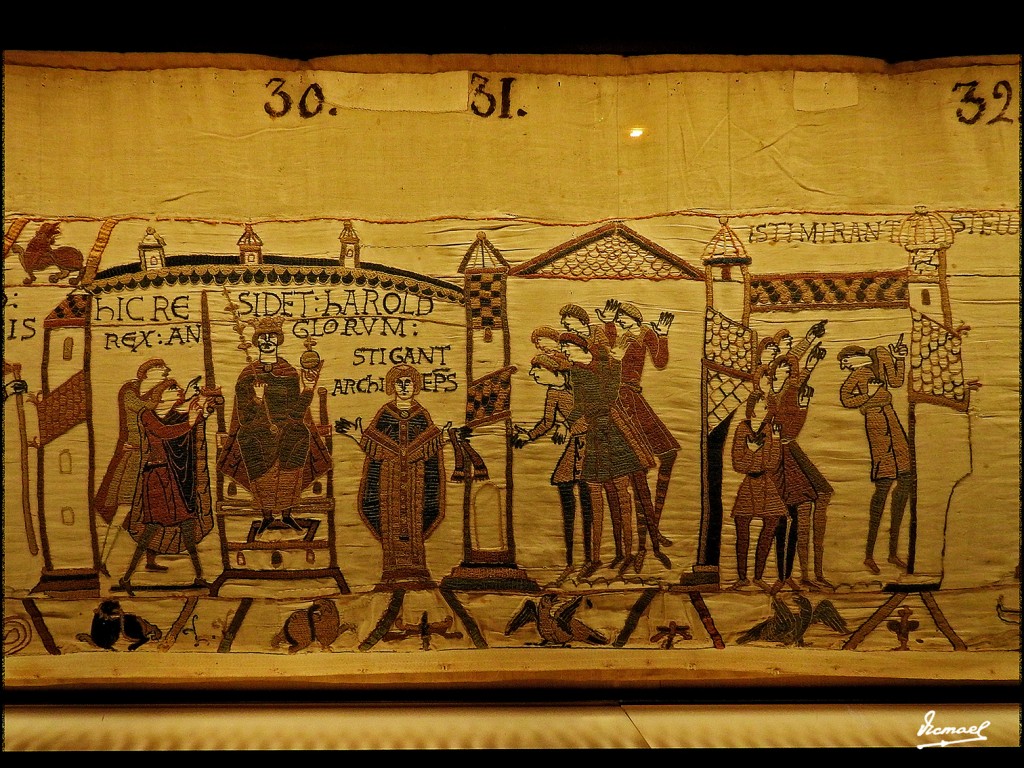 30. 31. 32
HIC RE SIDET: HAROLD
REX: AN GLORVM:
IS
STIGANT
ARCHI EP̄S
ISTI MIRANT STELL
Vicmael